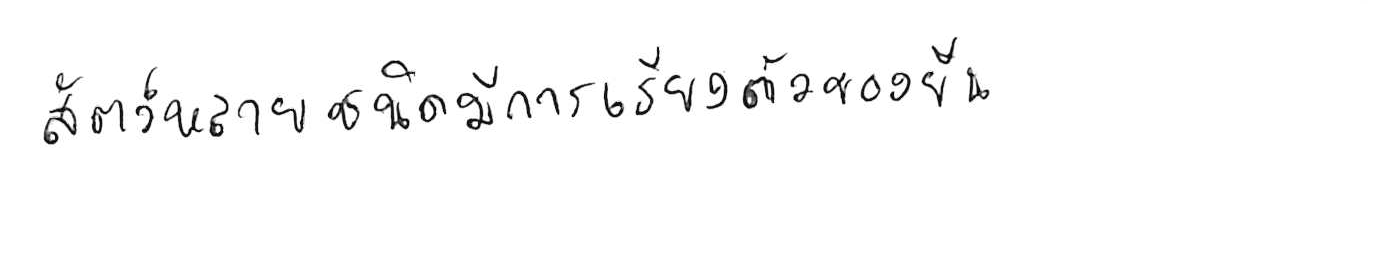 สัตว์หลายชนิดมีการเรียงตัวของยีน